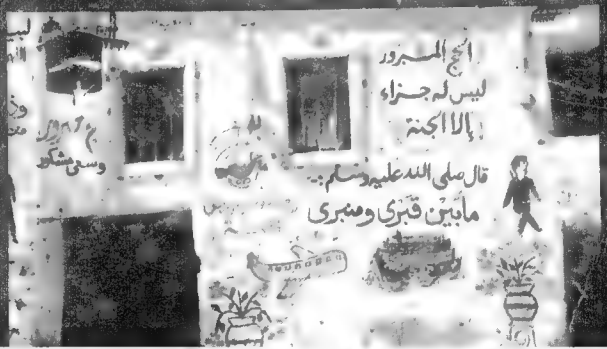 الحج المبرور
ليس له جزاء
إلا الجنة
قال صلى الله عليه وسلم:
مابين قبرى ومنبرى
وسعى مشكور